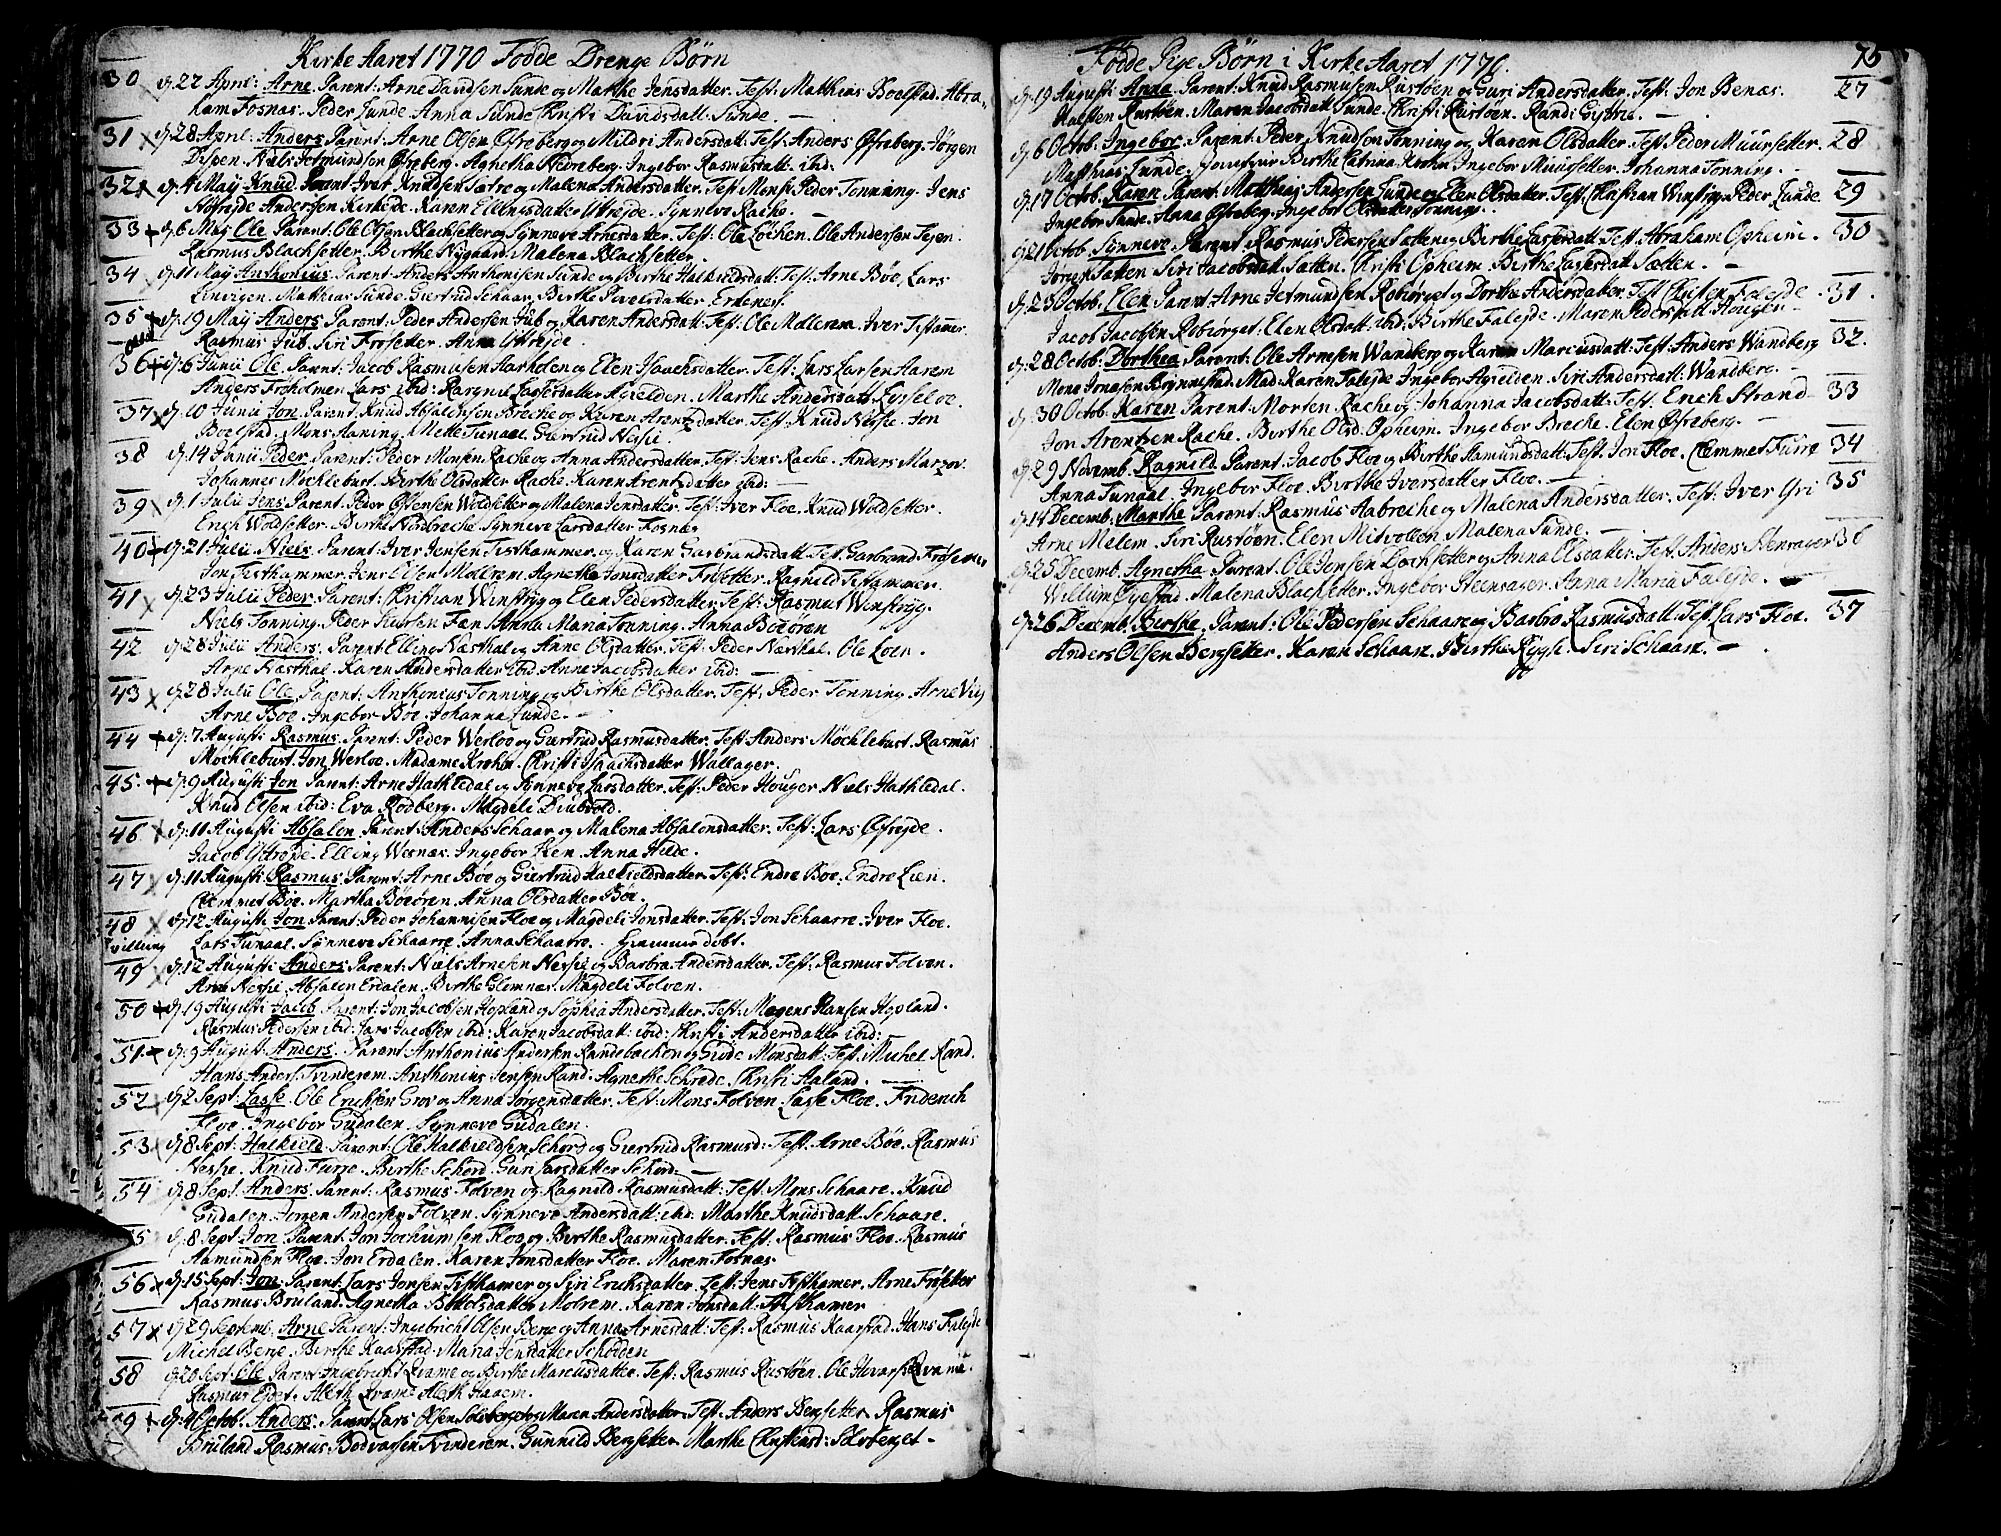 Kirke Aaret 1770 Fødde Drenge Børn
30 d. 22 April: Arne. Parent: Arne Davidsen Sunde og Marthe Jensdatter. Test: Mathias Boelstad. Abra-
ham Fosnas. Peder Lunde. Anna Sunde Christi Davidsdatt: Sunde.
31 d. 28 April. Anders. Parent: Arne Olsen Øfreberg og Mildri Andersdatt: Test: Anders Øfreberg. Jørgen
Dispen. Niels Jetmundsen Øfreberg. Agnetha Nedreberg. Ingebor Rasmusdatt. ibd:
32 d. 4 May Knud Parent Iver Knudsen Sætre og Malena Andersdatter. Test Mons: Peder Tonning. Jens
Andersen Kirkejde. Karen Ellingsdatter Utvejde. Synneve Rache.
33 d. 6 May Ole Parent: Ole Olsen Blachsetter og Synneve Arnesdatter. Test: Ole Løchen. Ole Andersen
Rasmus Blachsetter. Birthe Nygaard. Malena Blachsetter.
34 d. 11 May Anthonius. Parent: Anders Anthonisen Sunde og Birthe Halkieldsdatt: Test: Arne Bøe, Lars
Mathias Sunde. Giertrud Schaar. Birthe Povelsdatter.
35 d. 19 May Anders Parent: Peder Andersen Hub og Karen Andersdatt: Test: Ole Mollerem. Iver Tistamer.
Rasmus Hub. Siri Frøsetter. Anna
36 d. 6 Junii Ole. Parent: Jacob Rasmusen Aarholen og Elen Isaachsdatter. Test: Lars Larsen Aarem
Anders Frøholmen Lars ibid: Ragnild Lassesdatter Agielden. Marthe Andersdatt
37 d. 10 Junii Jon. Parent: Knud Absalonsen Breche og Karen Arentzdatter. Test: Knud Nesse. Jon
Boelstad. Mons Aaning. Mette Tunaal. Giertrud Nesse.
38 d. 14 Junii Peder. Parent: Peder Monsen Rache og Anna Andersdatter. Test: Jens Rache. Anders
Johannes Møchlebust. Birthe Olsdatter Rache. Karen Arentzdatter ibid:
39 d. 1 Julii Jens Parent: Peder Østensen Woldsetter og Malena Jensdatter. Test: Iver Floe. Knud Woldsetter.
Erich Woldsetter. Birthe Nordbreche. Synneve Larsdatter Fosnæs
40 d. 21 Julii Niels. Parent: Iver Jensen Tisthammer og Karen Garbrandsdatt: Test: Garbrand
Jon Tisthammer. Jens Olsen Mollrem. Agnethe Jonsdatter Frøsetter. Ragnild Tistammer.
41 d. 23 Julii Peder. Parent: Christian Winstryg og Elen Pedersdatter. Test: Rasmus Winstryg.
Niels Tonning. Peder Siursen Fæn. Anna Maria Tonning. Anna Bøeøren
42 d. 28 Julii Anders. Parent: Elling Næsthal og Anne Olsdatter. Test: Peder Næsthal. Ole Loen.
Arne Næsthal. Karen Andersdatter ibid. Anne Jacobsdatter ibid:
43 d. 28 Julii Ole. Parent: Anthonius Tonning og Birthe Olsdatter. Test: Peder Tonning. Arne Vig
Arne Bøe. Ingebor Bøe. Johanna Lunde.
44 d. 7 Augusti Rasmus. Parent: Peder Werloe og Giertrud Rasmusdatter. Test: Anders Møchlebust. Rasmus
Møchlebust. Jon Werloe. Madame Krohn. Christi Isaachsdatter Wallager.
45 d. 9 Augusti Jon. Parent: Arne Hathledal og Synneve Larsdatter. Test: Peder Houger. Niels Hathledal.
Knud Olsen ibid: Eva Rødberg. Magdeli Diubvold.
46 d. 11 Augusti Absalon. Parent: Anders Schaar og Malena Absalonsdatter. Test: Lars Øfrejde.
Jacob Ystrejde. Elling Wesnæs. Ingebor Hien. Anna Hilde.
47 d. 11 Augusti Rasmus. Parent: Arne Bøe og Giertrud Halkieldsdatter. Test: Endre Bøe. Endre Lien.
Clemmet Bøe. Martha Bøeøren. Anna Olsdatter Bøe.
48 d. 12 Augusti Jon. Parent: Peder Johannisen Floe og Magdeli Jonsdatter. Test: Jon Schaarre. Iver Floe.
Tvilling Lars Tunaal. Synneve Schaarre. Anna Schaarre. hiemmedøbt.
49 d. 12 Augusti Anders. Parent: Niels Arnesen Nesse og Barbra Andersdatter. Test: Rasmus Folven.
Arne Nesse. Absalon Erdalen. Birthe Glomnæs. Magdeli Folven.
50 d. 19 Augusti Jacob. Parent: Jon Jacobsen Hopland og Sophia Andersdatter. Test: Mogens Hansen Hopland.
Rasmus Pedersen ibid: Lars Jacobsen ibid: Karen Jacobsdatt: ibid: Christi Andersdatter ibid:
51 d. 9 August. Anders. Parent: Anthonius Andersen Randebachen og Giøde Monsdatt: Test. Michel Rand.
Hans Anders. Tvinderem. Anthonius Jensen Rand. Agnethe Schrede. Christi Aaland.
52 d. 2 Sept: Lasse. Ole Erichsen Grov og Anna Jørgensdatter. Test: Mons Folven. Lasse Floe. Friderich
Floe. Ingebor Gudalen. Synneve Gudalen.
53 d. 8 Sept: Halkield. Parent: Ole Halkieldsen Schord og Giertrud Rasmusd: Test: Arne Bøe. Rasmus
Nesse. Knud Furre. Birthe Schord. Guri Larsdatter Schord.
54 d. 8 Sept. Anders. Parent: Rasmus Folven og Ragnild Rasmusdatt: Test: Mons Schaare. Knud
Gudalen. Jørgen Andersen Folven. Synneve Andersdatt: ibid. Marthe Knudsdatt. Schaare.
55 d. 8 Sept. Jon. Parent. Jon Jochumsen Floe og Birthe Rasmusdatter. Test: Rasmus Floe. Rasmus
Aamundsen Floe. Jon Erdalen. Karen Jonsdatter Floe. Maren Fosnæs
56 d. 15 Sept: Jon. Parent: Lars Jonsen Tisthamer og Siri Erichsdatter. Test: Jens Tisthamer. Arne Frøsetter
Rasmus Bruland. Agnetha Bottolsdatter Molrem. Karen Jonsdatt: Tisthamer
57 d. 29 Septemb. Arne Parent: Ingebricht Olsen Bene og Anna Arnesdatt: Test: Rasmus Kaarstad. Hans Falejde
Michel Bene. Birthe Kaarstad. Maria Jensdatter Scheiden
58 d. 20 Sept. Ole. Parent Ingebregt Qvame og Birthe Marcusdatter. Test: Rasmus Rustøen. Ole Qvame.
Rasmus Eide. Aleth Qvame Aleth Haaem.
59 d. 4 Octob. Anders. Parent: Lars Olsen Solvberget og Maren Andersdatter. Test: Anders Bergsetter. Rasmus
Bruland Rasmus Bodvarsen Tvinderem. Gunnild Bergsetter. Marthe Christensd: Solvberget.
Fødde Pige Børn i Kirke Aaret 1770. 75
d. 19 Augusti Anna. Parent: Knud Rasmusen Rustøen og Guri Andersdatter. Test: Jon Benæs. 27
Halsten Rustøen. Maren Jacobsdatt Sunde. Christi Rustøen. Randi Gytrie.
d. 6 Octob. Ingebor. Parent. Peder Knudsøn Tonning og Karen Olsdatter. Test. Peder Muursetter. 28
Matthias Lunde. Jomfrue Birthe Catrina Krohn. Ingebor Muursetter. Johanna Tonning.
d. 17 Octob. Karen. Parent. Matthias Andersen Lunde og Elen Olsdatter. Test. Christian Winstryg. Peder Lunde 29
Ingebor Sunde. Anna Øfreberg. Ingebor Olsdatter Tonning.
d. 21 Octob. Synneve. Parent. Rasmus Pedersen Sætten og Birthe Lassesdatt. Test. Abraham Opheim. 30
Jørgen Sætten Siri Jacobsdatt. Sætten. Christi Opheim. Birthe Lassesdatt Sætten.
d. 23 Octob. Elen Parent: Arne Jetmundsen Robiørget og Dorthe Andersdatter. Test Christen Falejde 31.
Jacob Jacobsen Robiørget. Elen Olsdatt ibid: Birthe Falejde. Maren Pedersdatt: Hougen.
d. 28 Octob. Dorthea. Parent: Ole Arnesen Wandberg og Karen Marcusdatt: Test: Anders Wandberg 32.
Mons Jonasen Brynnestad. Mad. Karen Falejde. Ingebor Agielden. Siri Andersdatt: Wandberg.
d. 30 Octob. Karen. Parent: Morten Rache og Johanna Jacobsdatt: Test. Erich Strand 33
Jon Arentzen Rache. Birthe Olsd. Opheim. Ingebor Breche. Elen Øfreberg.
d. 29 Novemb. Ragnild. Parent: Jacob Floe og Birthe Aamundsdatt: Test. Jon Floe. Clemmet Furre 34
Anna Tunaal. Ingebor Floe. Birthe Iversdatter Floe.
d. 14 Decemb. Marthe. Parent: Rasmus Aabreche og Malena Andersdatter. Test: Iver Gri 35
Arne Melem. Siri Rustøen. Elen Mitvolden. Malena Sunde.
d. 25 Decemb. Agnetha. Parent. Ole Jensen Løchsetter og Anna Olsdatter. Test: Anders Heensager 36
Willum Øjestad. Malena Blachsetter. Ingebor Heensager. Anna Maria Falejde.
d. 26 Decemb. Berthe. Parent: Ole Pedersen Schaare og Barbro Rasmusdatt. Test. Lars Floe. 37
Anders Olsen Bergsetter. Karen Schaare. Birthe Rygh. Siri Schaare.